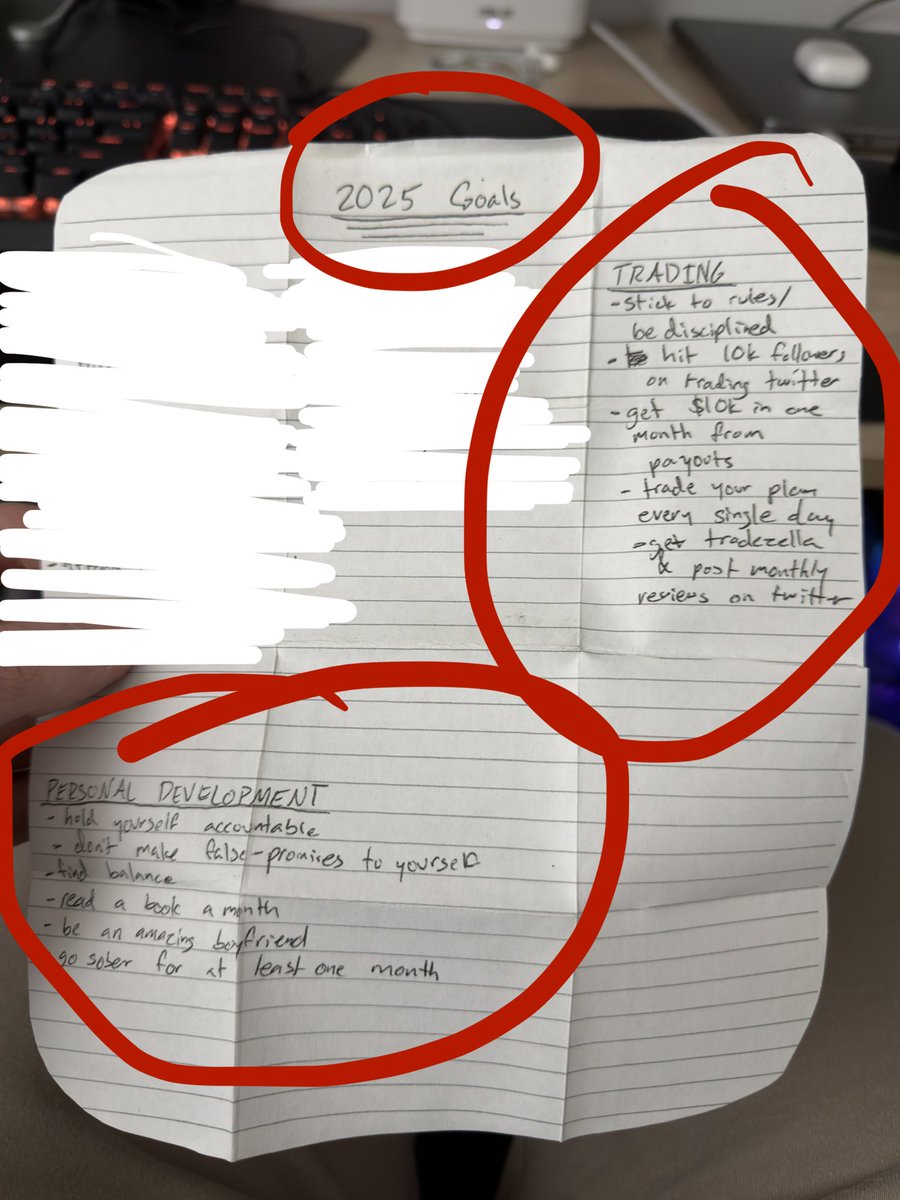 2025 Goals
TRADING
- stick to rules/
be disciplined
- hit 10k followers
on trading twitter
- get $10k in one
month from
payouts
- trade your plan
every single day
- get tradezella
& post monthly
reviews on twitter
PERSONAL DEVELOPMENT
- hold yourself accountable
- don't make false-promises to yourself
- find balance
- read a book a month
- be an amazing boyfriend
go sober for at least one month